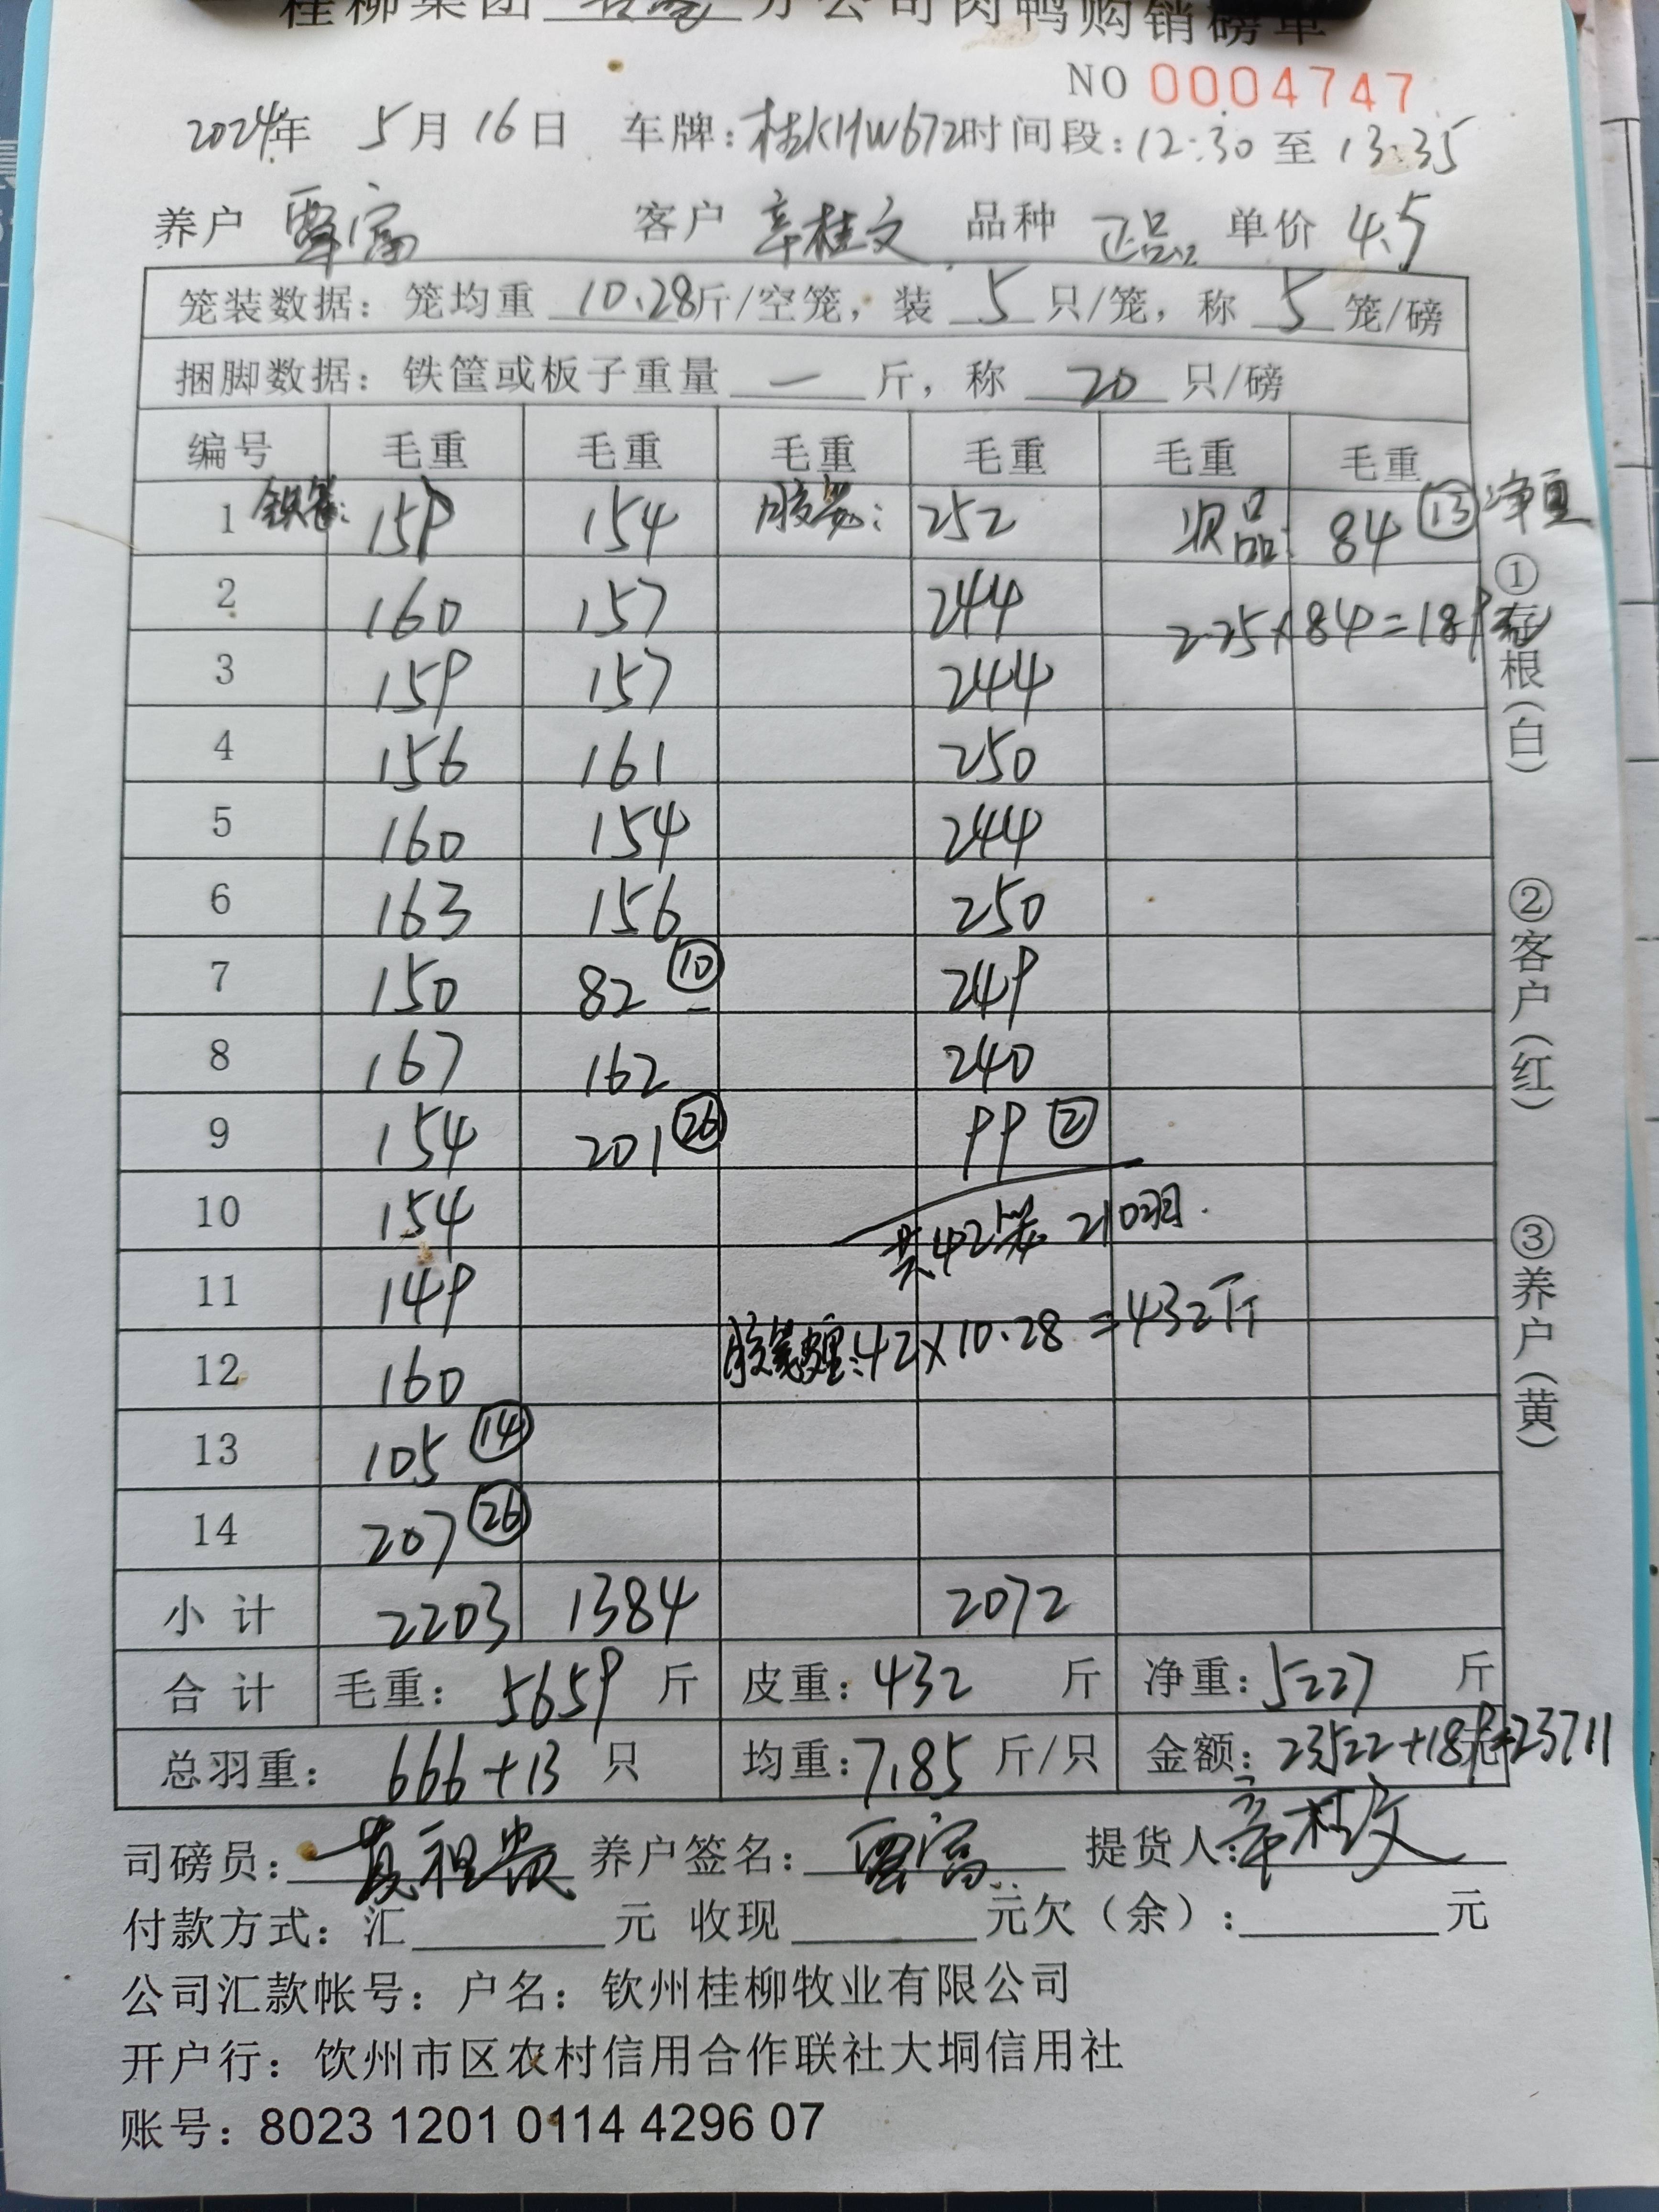 桂柳集团 分公司肉鸭购销磅单
NO 0004747
2024年 5月16日 车牌：桂KHW672 时间段：12:30 至 13:35
养户 覃富 客户 辛桂文 品种 正品 单价 4.5
笼装数据：笼均重 10.28斤/空笼，装 5 只/笼，称 5 笼/磅
捆脚数据：铁筐或板子重量 — 斤，称 20 只/磅
编号 毛重 毛重 毛重 毛重 毛重 毛重
1 铁笼: 159 154 胶笼: 252 次品: 84 ⑬ 净重
2 160 157 244 2.25×84=189元
3 159 157 244
4 156 161 250
5 160 154 244
6 163 156 250
7 150 82 ⑩ 249
8 167 162 240
9 154 201 ㉖ 99 ②
10 154 共42笼 210羽.
11 149
12 160 胶笼皮重:42×10.28=432斤
13 105 ⑭
14 207 ㉖
小计 2203 1384 2072
合计 毛重：5659 斤 皮重：432 斤 净重：5227 斤
总羽重： 666+13 只 均重：7.85 斤/只 金额：23522+189=23711
司磅员： 养户签名：覃富 提货人：辛桂文
付款方式：汇 元 收现 元欠（余）： 元
公司汇款帐号：户名：钦州桂柳牧业有限公司
开户行：饮州市区农村信用合作联社大垌信用社
账号：8023 1201 0114 4296 07
①存根（白）
②客户（红）
③养户（黄）